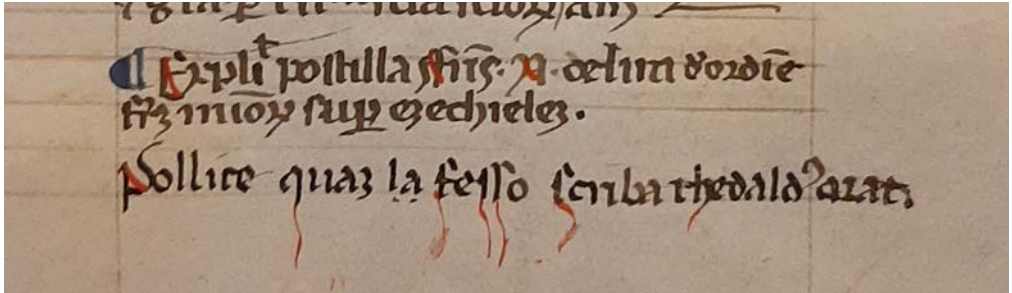 ¶ Expliᵗ postilla fr̄is. N. de lira d'ordīe
fr̄ꝫ mīoꝝ suꝑ eꝫechieleꝫ.
Pollice quaꝫ la fesso scriba thedaldꝰ arat.